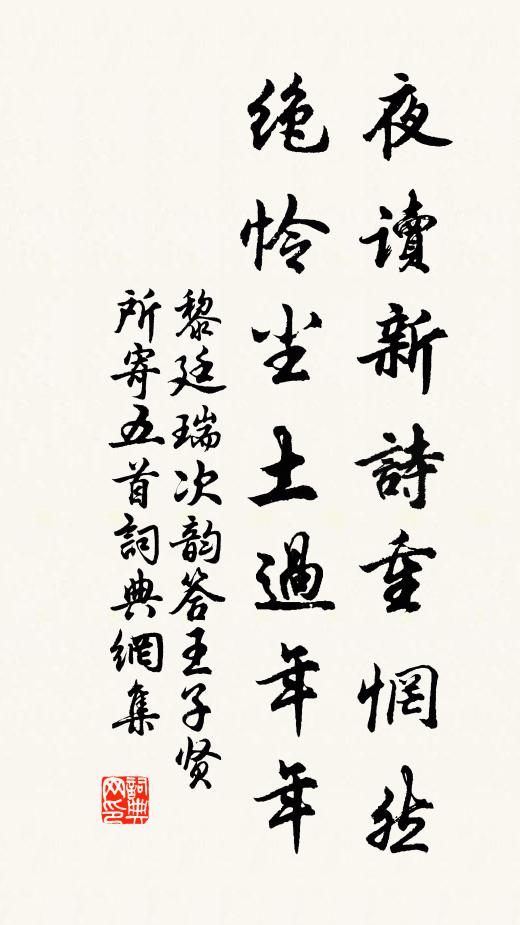 夜讀新詩重惘然
絶怜尘土過年年
黎廷瑞次韵答王子贤
所寄五首詞典網集
詞典
网印